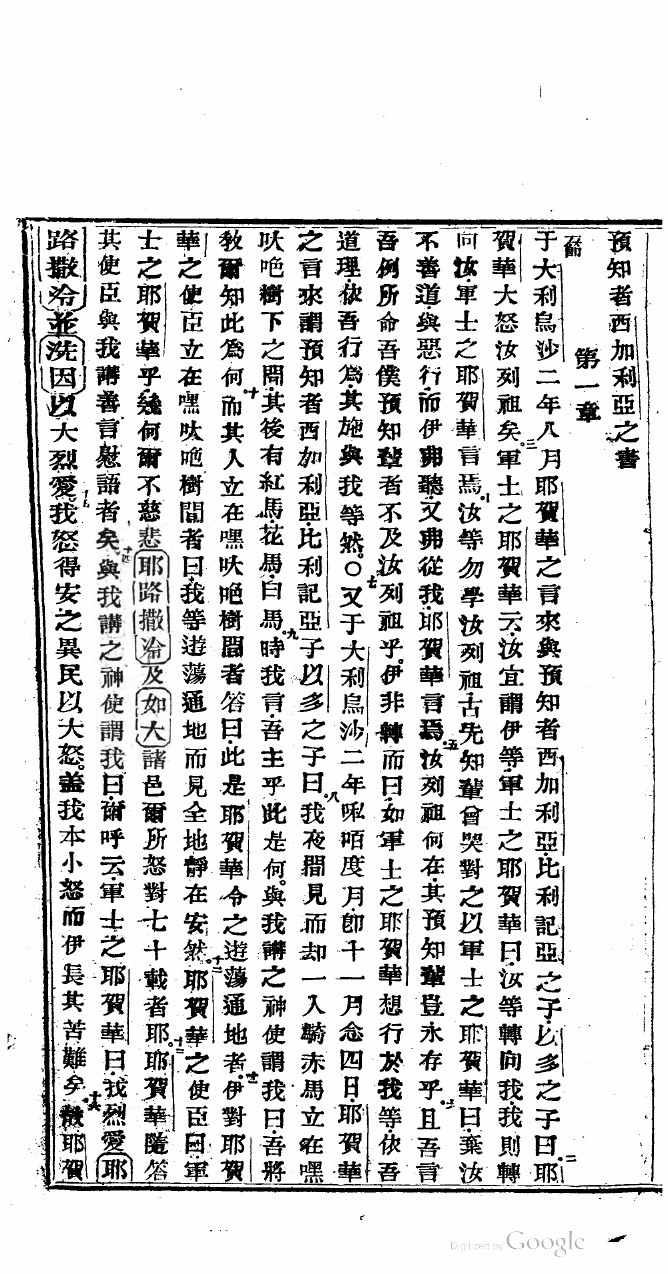 預知者西加利亞之書
第一章
于大利烏沙二年八月耶賀華之言來與預知者西加利亞比利記亞之子以多之子曰耶
賀華大怒汝列祖矣軍士之耶賀華云汝宜謂伊等軍士之耶賀華曰汝等轉向我我則轉
向汝軍士之耶賀華言焉汝等勿學汝列祖古先知輩曾哭對之以軍士之耶賀華曰棄汝
不善道與惡行而伊弗聽又弗從我耶賀華言焉汝列祖何在其預知輩豈永存乎且吾言
吾例所命吾僕預知輩者不及汝列祖乎伊非轉而曰如軍士之耶賀華想行於我等依吾
道理依吾行爲其施與我等然○又于大利烏沙二年㖿咟度月卽十一月念四日耶賀華
之言來謂預知者西加利亞比利記亞子以多之子曰我夜間見而却一人騎赤馬立在嘿
吠吔樹下之間其後有紅馬花馬白馬時我言吾主乎此是何與我講之神使謂我曰吾將
敎爾知此爲何而其人立在嘿吠吔樹間者答曰此是耶賀華令之遊蕩通地者伊對耶賀
華之使臣立在嘿吠吔樹間者曰我等遊蕩通地而見全地靜在安然耶賀華之使臣曰軍
士之耶賀華乎幾何爾不慈悲耶路撒冷及如大諸邑爾所怒對七十載者耶耶賀華隨答
其使臣與我講善言慰語者矣與我講之神使謂我曰爾呼云軍士之耶賀華曰我烈愛耶
路撒冷並洗因以大烈愛我怒得安之異民以大怒蓋我本小怒而伊長其苦難矣故耶賀
Digitized by Google